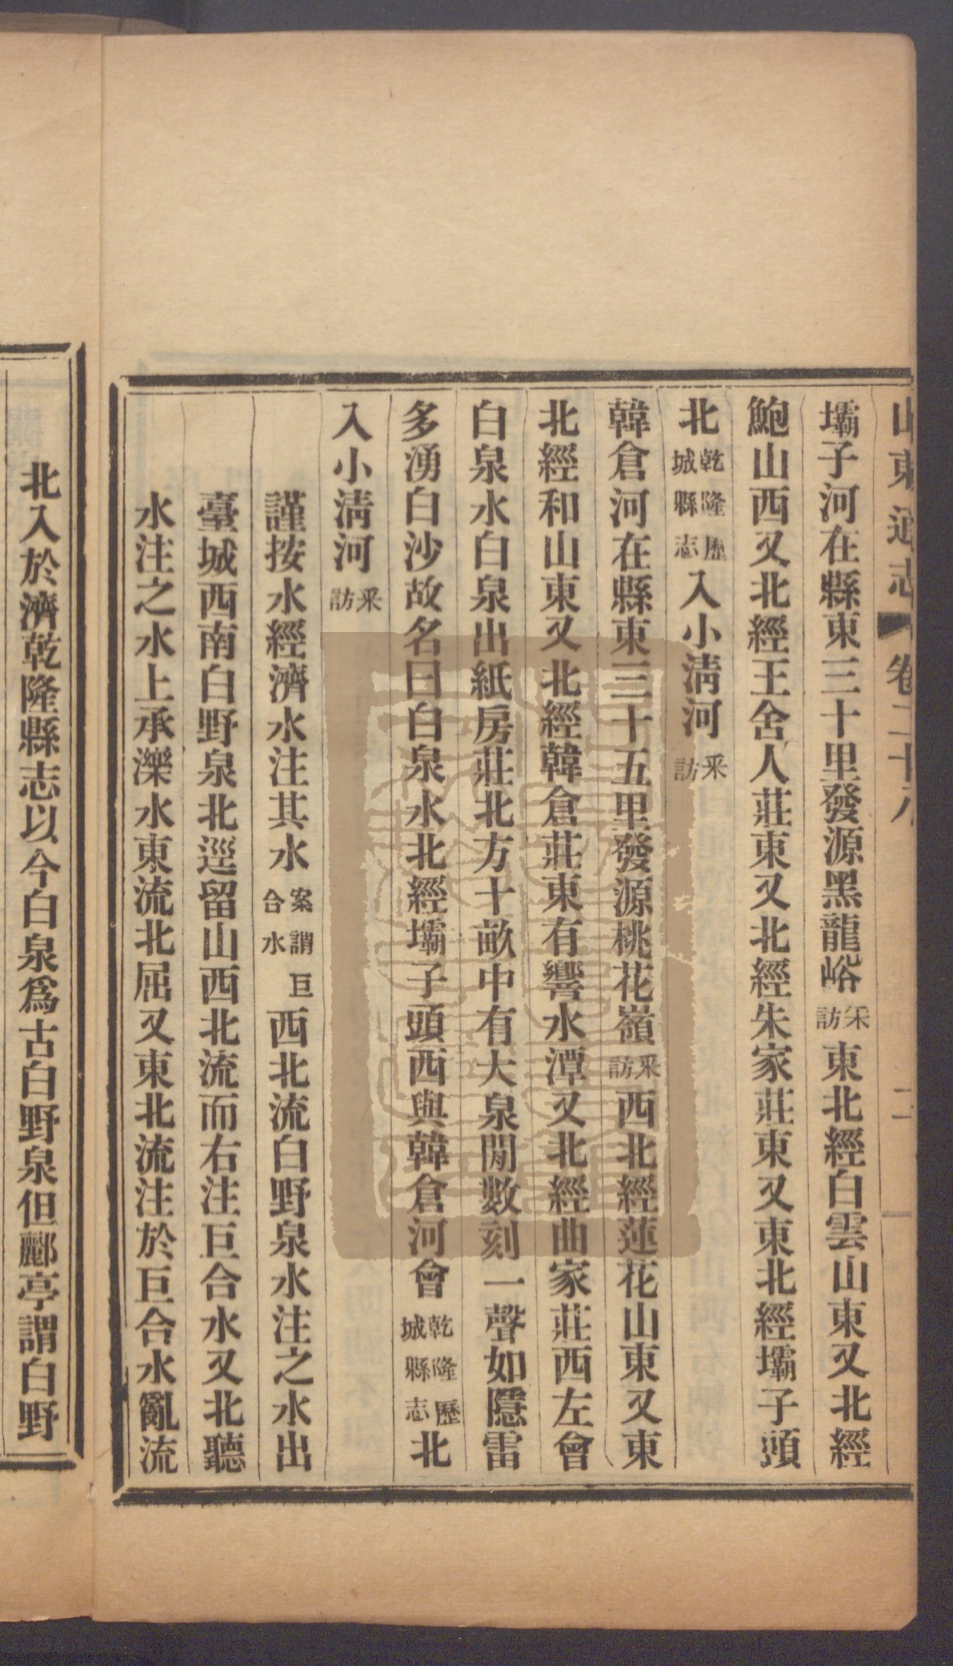 山東通志 卷二十八 二
壩子河在縣東三十里發源黑龍峪采訪東北經白雲山東又北經
鮑山西又北經王舍人莊東又北經朱家莊東又東北經壩子頭
北乾隆歷城縣志入小淸河采訪
韓倉河在縣東三十五里發源桃花嶺采訪西北經蓮花山東又東
北經和山東又北經韓倉莊東有響水潭又北經曲家莊西左會
白泉水白泉出紙房莊北方十畝中有大泉閒數刻一聲如隱雷
多湧白沙故名曰白泉水北經壩子頭西與韓倉河會乾隆歷城縣志北
入小淸河采訪
謹按水經濟水注其水案謂巨合水西北流白野泉水注之水出
臺城西南白野泉北逕留山西北流而右注巨合水又北聽
水注之水上承濼水東流北屈又東北流注於巨合水亂流
北入於濟乾隆縣志以今白泉爲古白野泉但酈亭謂白野